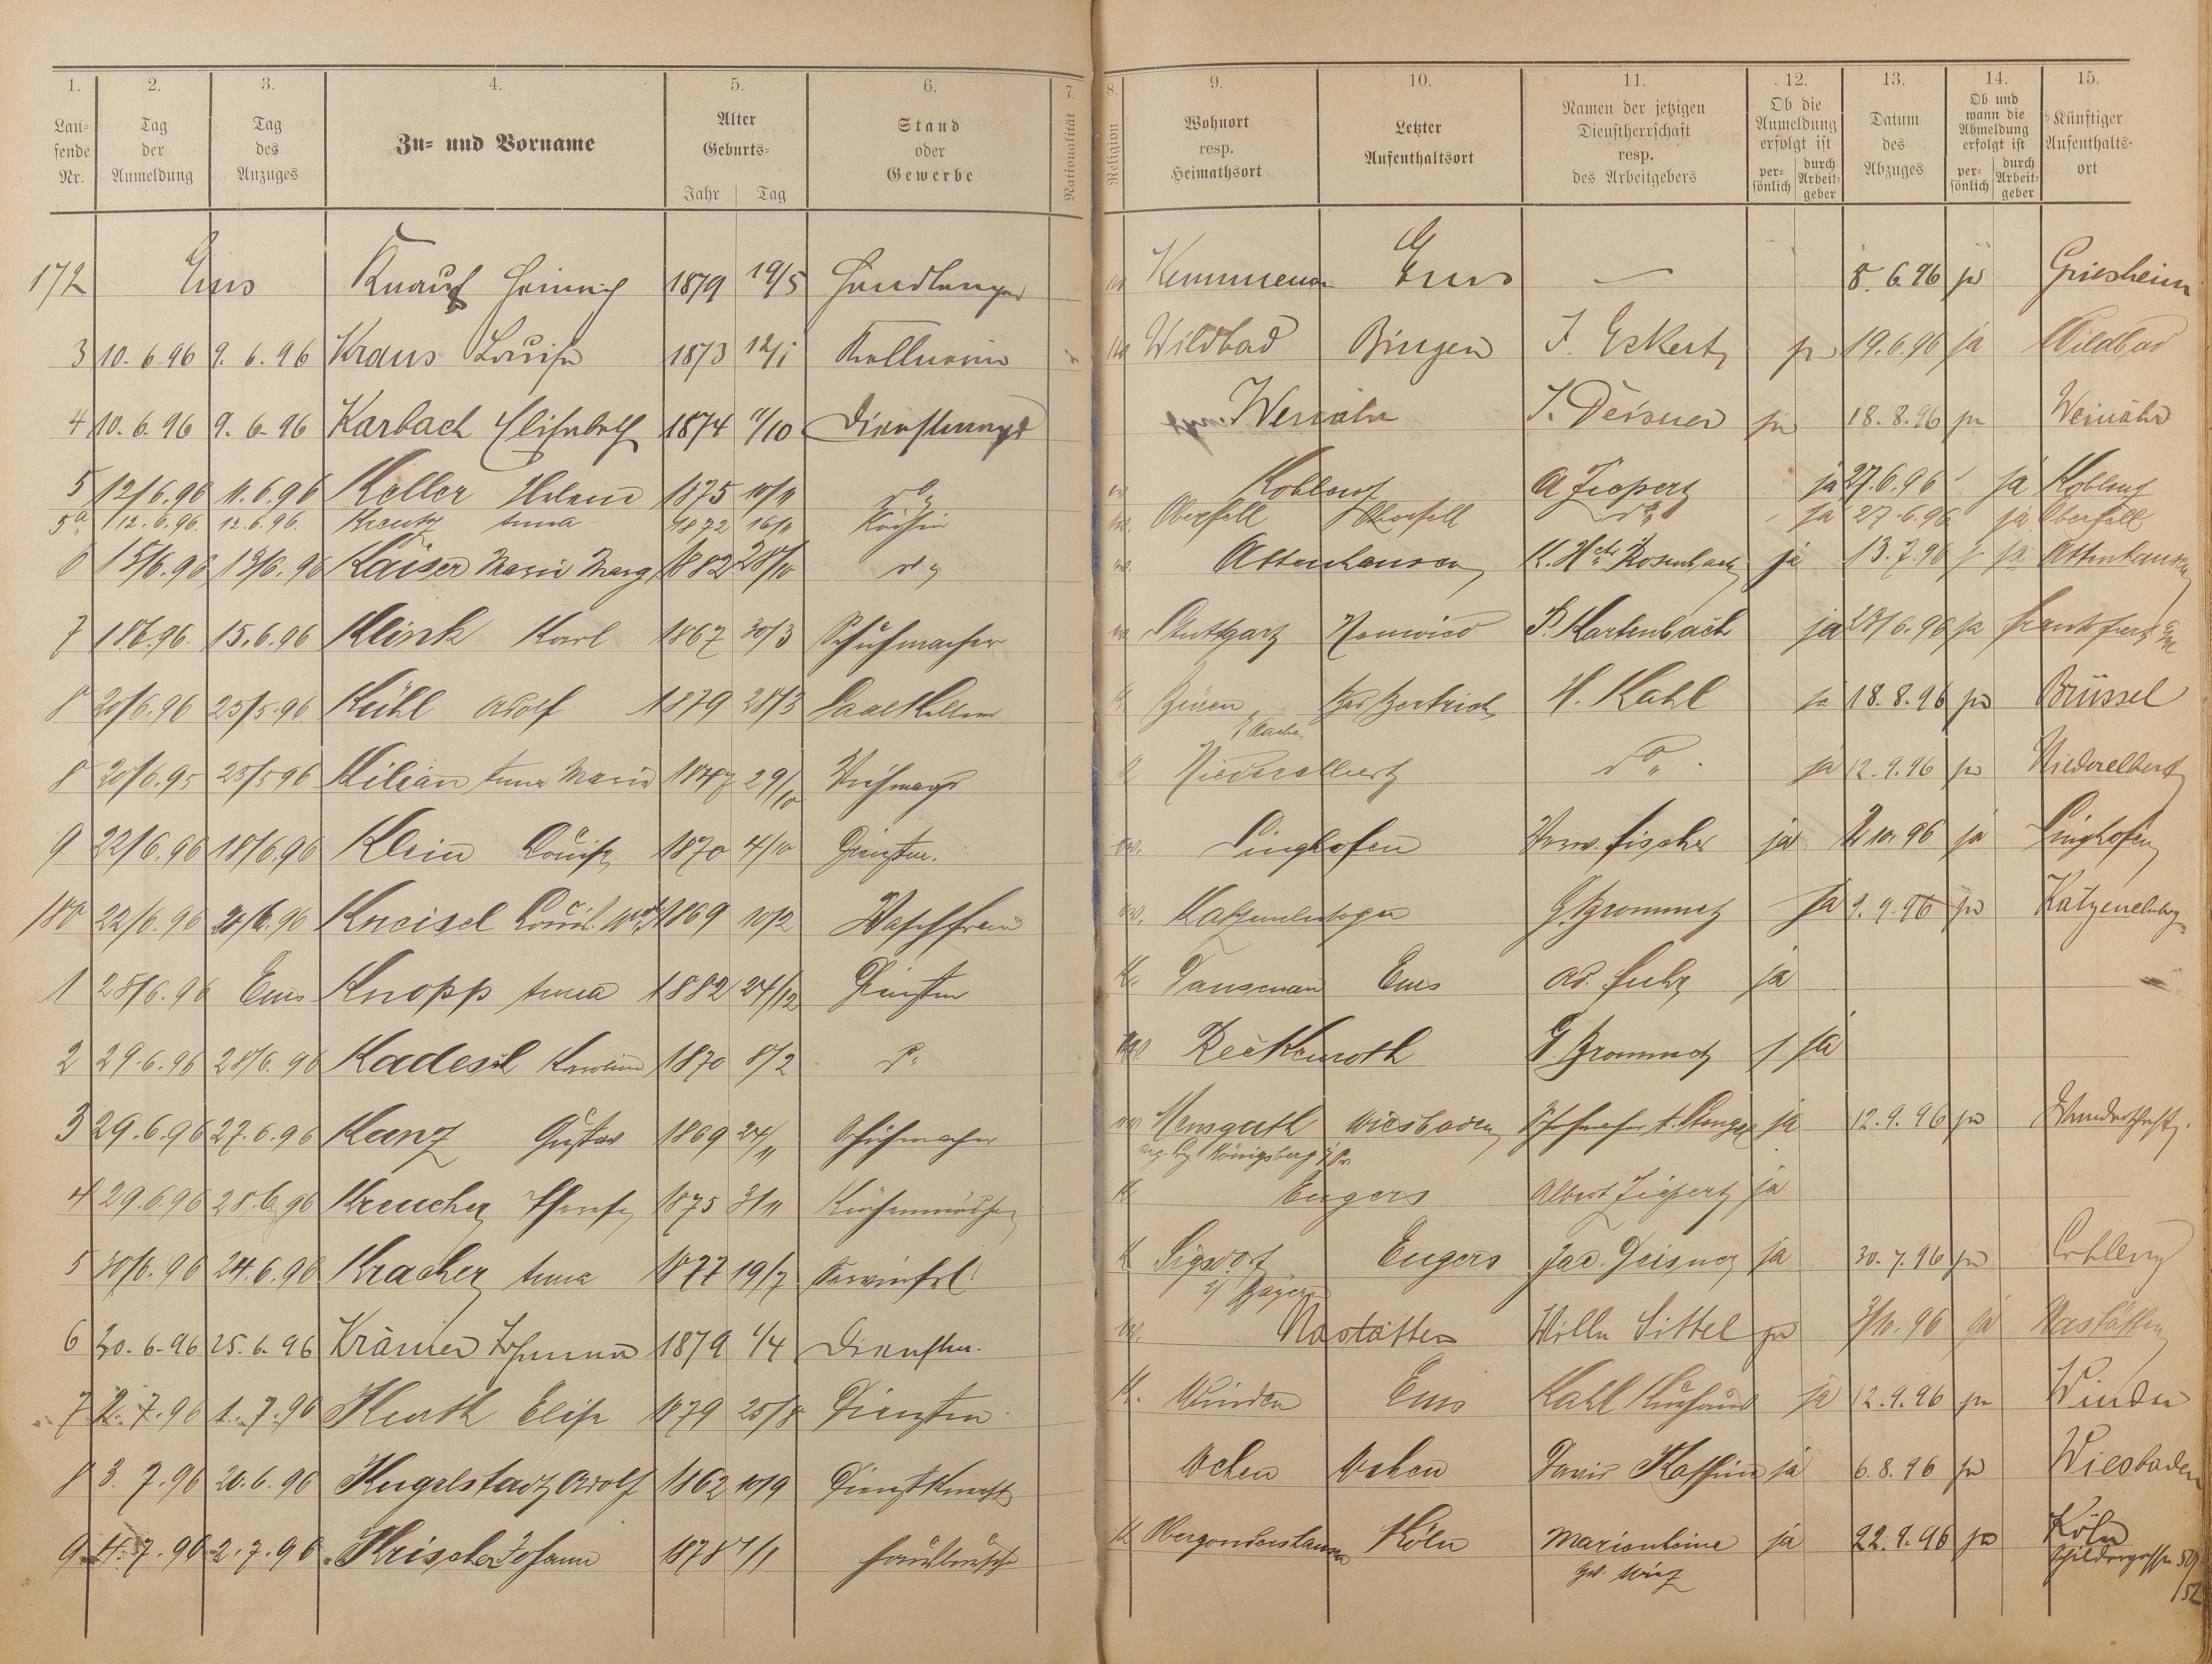 1. 2. 3. 4. 5. 6. 7. 8. 9. 10. 11. 12. 13. 14. 15.
Laufende Nr.
Tag der Anmeldung
Tag des Anzuges
Zu- und Vorname
Alter Geburts- Jahr Tag
Stand oder Gewerbe
Nationalität
Religion
Wohnort resp. Heimathsort
Letzter Aufenthaltsort
Namen der jetzigen Dienstherrschaft resp. des Arbeitgebers
Ob die Anmeldung erfolgt ist persönlich durch Arbeitgeber
Datum des Abzuges
Ob und wann die Abmeldung erfolgt ist persönlich durch Arbeitgeber
Künftiger Aufenthaltsort
172 Ems Knauf Heinrich 1879 19/5 Handlanger Kemmenau Ems — 5. 6.96 ja Griesheim
3 10. 6.96 9. 6. 96 Kraus Louise 1873 12/1 Kellnerin Wildbad Bingen J. Eckert ja 19.6.96 ja Wildbad
4 10. 6. 96 9. 6. 96 Karbach Elisabeth 1874 11/10 Dienstmagd Weinähr J. Deisner ja 18. 8. 96 ja Weinähr
5 12/6.96 11. 6.96 Keller Helene 1875 10/11 do Koblenz A Ziepert ja 27.6.96 ja Koblenz
5a 12. 6. 96. 12. 6. 96. Kreutz Anna 1872 16/11 Köchin ev. Oberfell Oberfell do ja 27.6.96 ja Oberfell
6 15/6.96 13/6.96 Kaiser Marie Marg. 1882 28/10 do ev. Attenhausen K. Hch. Rosenbach ja 13.7.96 ja Attenhausen
7 18.6.96. 15.6.96 Klink Karl 1867 30/3 Schuhmacher ev. Stuttgart Neuwied P. Kartenbach ja 27/6.96 ja Frankfurt a/M
8 20/6.96 25/5.96 Kühl Adolf 1879 28/3 Saalkellner K. Düren b/ Aachen Bad Bertrich H. Kahl ja 18. 8. 96 ja Brüssel
8 20/6.95 25/5 96 Kilian Anna Maria 1847 29/10 K Niederelbert do ja 12. 9. 96 ja Niederelbert
9 22/6.96 18/6.96 Klein Louise 1870 4/10 Dienstm. ev. Singhofen Wwe. Fischer ja 2 10. 96 ja Singhofen
180 22/6.96 20/6.96 Kneisel Louis. Wwe 1869 10/2 Waschfrau ev. Katzenelnbogen G. Brommetz ja 9. 9. 96 ja Katzenelnbog.
1 25/6.96 Ems Knopp Anna 1882 24/12 Dienstm K. Dausenau Ems Ad. Fuhr ja
2 29.6.96 28/6.96 Kadesch Karoline 1870 8/2 do ev. Reckenroth G. Brommetz ja
3 29.6.96 27.6.96 Kanz Gustav 1869 24/11 Schuhmacher ev. Mensguth Reg. Bez. Königsberg i/Pr. Wiesbaden Schuhmacher A. Stenges ja 12. 9. 96 ja Wanderschaft.
4 29.6.96 28.6.96 Kreucher Therese 1875 3/11 Küchenmädchen K Engers Albert Ziepert ja
5 30/6.96 24.6.96 Kracher Anna 1877 19/7 Servierfrl. K i/ Bayern Engers Jac. Deisner ja 30. 7. 96 ja Coblenz
6 30. 6.96 25. 6. 96 Krämer Johanna 1879 1/4 Dienstm. ev. Nastätten Willn Sittel ja 3/10. 96 ja Nastätten
7 2. 7.96 1. 7.96 Kurth Elise 1879 25/8 Dienstm. K. Winden Ems Kahl Kurhaus ja 12. 9. 96 ja Winden
8 3. 7.96 20.6.96 Kugelstadt Adolf 1862 10/9 Dienstknecht Wehen Wehen David Kaffine ja 6. 8. 96 ja Wiesbaden
9 4. 7.96 2. 7.96 Krischer Johann 1878 7/1 Hausbursche K Obergondershausen Köln Marienheim ja 22. 9. 96 ja Köln Schildergasse 50/52